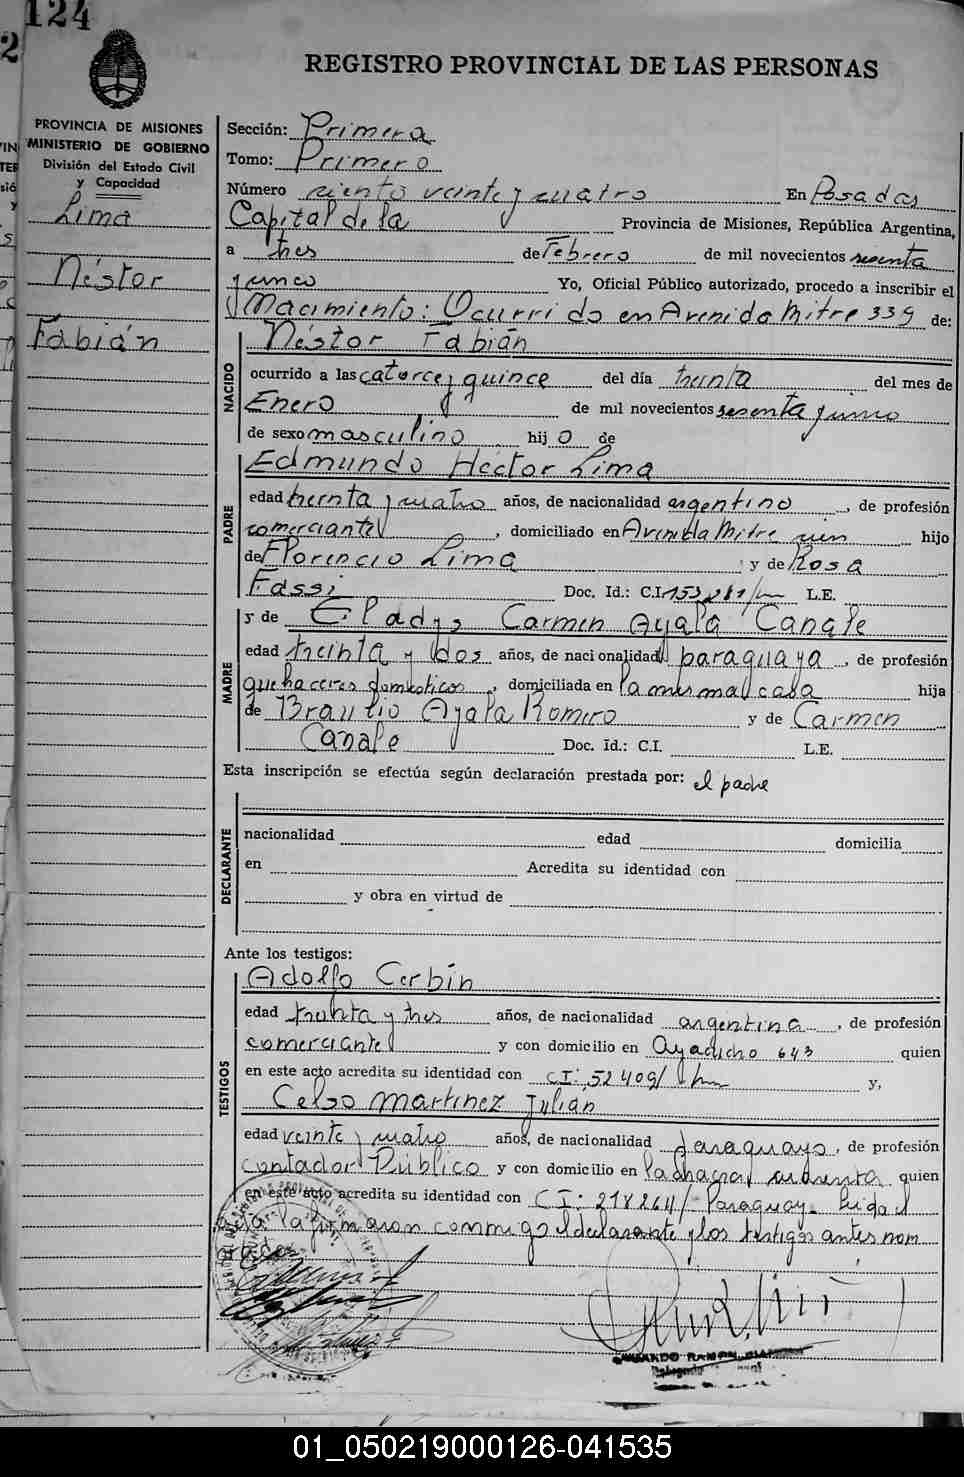 124
REGISTRO PROVINCIAL DE LAS PERSONAS
PROVINCIA DE MISIONES
MINISTERIO DE GOBIERNO
División del Estado Civil
y Capacidad
Lima
Néstor
Fabián
Sección: Primera
Tomo: Primero
Número ciento veinte y cuatro En Posadas
Capital de la Provincia de Misiones, República Argentina,
a tres de Febrero de mil novecientos sesenta
y cinco Yo, Oficial Público autorizado, procedo a inscribir el
Nacimiento: Ocurrido en Avenida Mitre 339 de:
NACIDO
Néstor Fabián
ocurrido a las catorce y quince del día treinta del mes de
Enero de mil novecientos sesenta y cinco
de sexo masculino hijo de
PADRE
Edmundo Héctor Lima
edad treinta y cuatro años, de nacionalidad argentino, de profesión
comerciante, domiciliado en Avenida Mitre hijo
de Florencio Lima y de Rosa
Fassi Doc. Id.: C.I. L.E.
MADRE
y de Gladys Carmen Ayala Canale
edad treinta y dos años, de nacionalidad paraguaya, de profesión
quehaceres domésticos, domiciliada en la misma casa hija
de Braulio Ayala Romero y de Carmen
Canale Doc. Id.: C.I. L.E.
Esta inscripción se efectúa según declaración prestada por: el padre
DECLARANTE
nacionalidad edad domicilia
en Acredita su identidad con
y obra en virtud de
Ante los testigos:
TESTIGOS
Adolfo Cerbín
edad treinta y tres años, de nacionalidad argentina, de profesión
comerciante y con domicilio en Ayacucho 643 quien
en este acto acredita su identidad con CI: 52409/ y,
Celso Martinez Julián
edad veinte y cuatro años, de nacionalidad paraguayo, de profesión
Contador Público y con domicilio en la chacra quien
en este acto acredita su identidad con CI: 218264/ Paraguay. Leida el
acta la firmaron conmigo el declarante y los testigos antes nom
brados
01_050219000126-041535